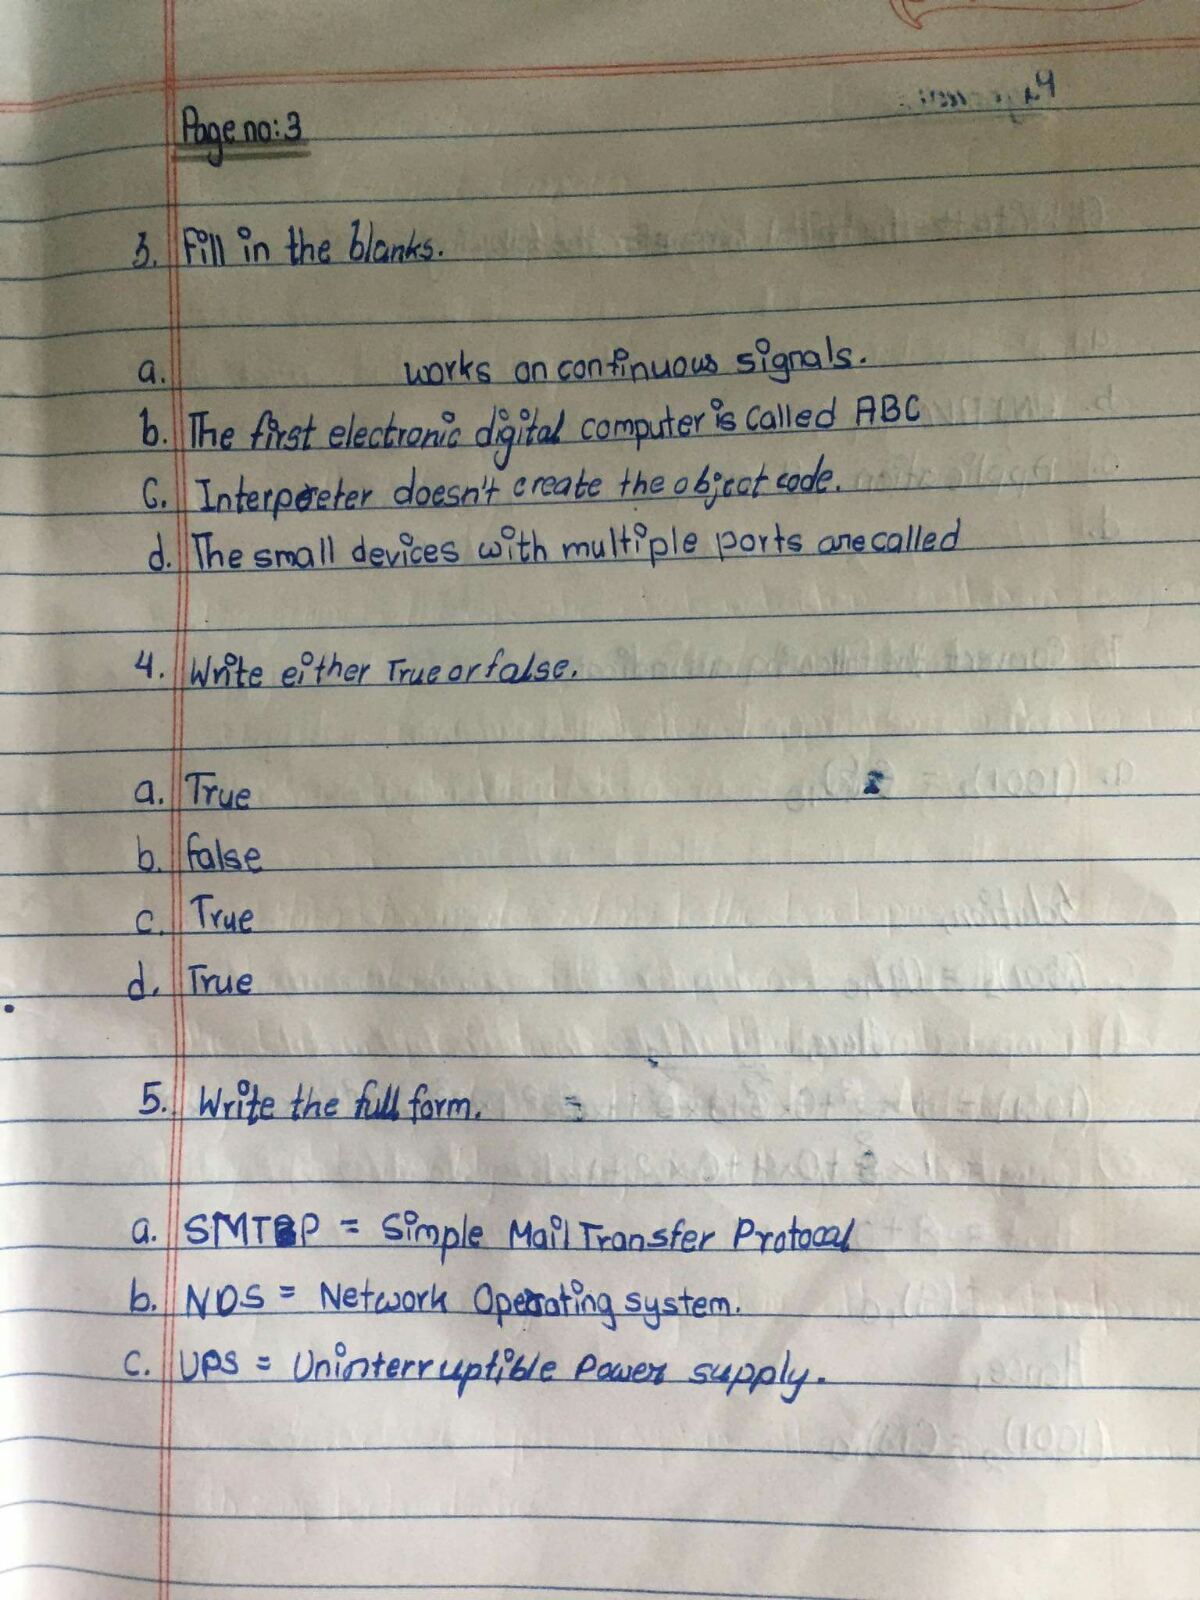 Page no: 3
3. Fill in the blanks.
a. works on continuous signals.
b. The first electronic digital computer is called ABC
C. Interpreter doesn't create the object code.
d. The small devices with multiple ports are called
4. Write either True or false.
a. True
b. false
c. True
d. True
5. Write the full form.
a. SMTP = Simple Mail Transfer Protocal
b. NOS = Network Operating system.
c. UPS = Uninterruptible Power supply.